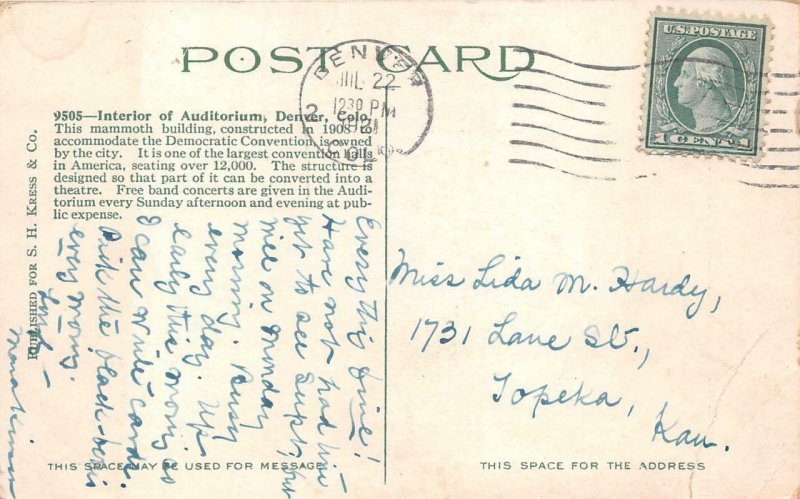 POST CARD
U.S. POSTAGE
1 CENT 1
DENVER
JUL 22
12 30 PM
1921
2
COLO.
9505—Interior of Auditorium, Denver, Colo.
This mammoth building, constructed in 1908 to
accommodate the Democratic Convention, is owned
by the city. It is one of the largest convention halls
in America, seating over 12,000. The structure is
designed so that part of it can be converted into a
theatre. Free band concerts are given in the Audi-
torium every Sunday afternoon and evening at pub-
lic expense.
PUBLISHED FOR S. H. KRESS & CO.
Everything fine!
Have not had time
yet to see Supt, but
will on Monday
morning. Busy
every day. Up
early this morn. so
I can write cards.
Pick the black-
every morn.
Love—
Miss Lida M. Hardy,
1731 Lane St.,
Topeka,
Kan.
THIS SPACE MAY BE USED FOR MESSAGE
THIS SPACE FOR THE ADDRESS